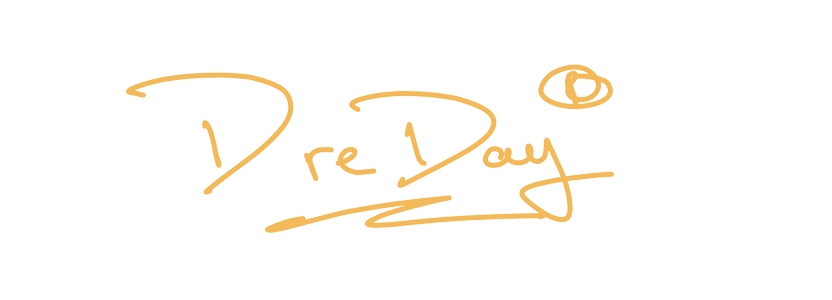 Dre Day